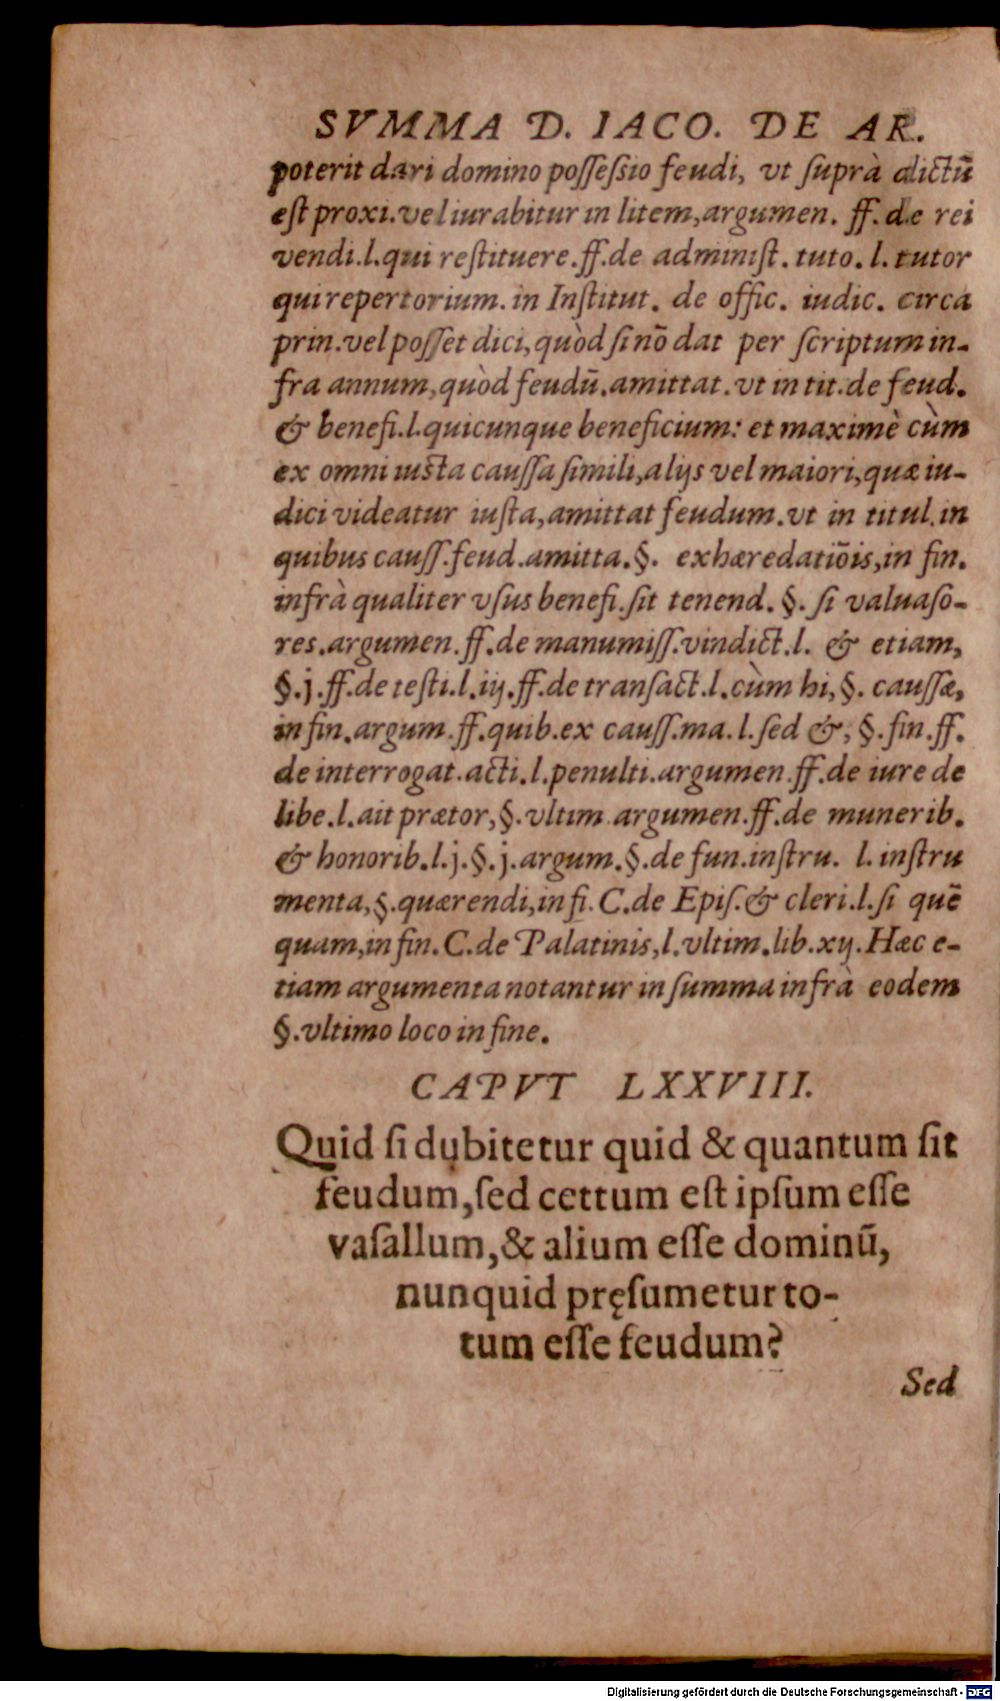 SVMMA D. IACO. DE AR.
poterit dari domino poſſeſsio feudi, vt ſuprà dictũ
eſt proxi. vel iurabitur in litem, argumen. ff. de rei
vendi. l. qui reſtituere. ff. de adminiſt. tuto. l. tutor
qui repertorium. in Inſtitut. de offic. iudic. circa
prin. vel poſſet dici, quòd ſi nõ dat per ſcriptum in-
fra annum, quòd feudũ. amittat. vt in tit. de feud.
& benefi. l. quicunque beneficium: et maximè cùm
ex omni iuſta cauſſa ſimili, alijs vel maiori, quæ iu-
dici videatur iuſta, amittat feudum. vt in titul. in
quibus cauſſ. feud. amitta. §. exhæredatiõis, in fin.
infrà qualiter vſus benefi. ſit tenend. §. ſi valuaſo-
res. argumen. ff. de manumiſſ. vindict. l. & etiam,
§. j. ff. de teſti. l. iij. ff. de tranſact. l. cùm hi, §. cauſſæ,
in fin. argum. ff. quib. ex cauſſ. ma. l. ſed &, §. fin. ff.
de interrogat. acti. l. penulti. argumen. ff. de iure de
libe. l. ait prætor, §. vltim. argumen. ff. de munerib.
& honorib. l. j. §. j. argum. §. de fun. inſtru. l. inſtru
menta, §. quærendi, in fi. C. de Epiſ. & cleri. l. ſi quẽ
quam, in fin. C. de Palatinis, l. vltim. lib. xij. Hæc e-
tiam argumenta notantur in ſumma infrà eodem
§. vltimo loco in fine.
CAPVT LXXVIII.
Quid ſi dubitetur quid & quantum ſit
feudum, ſed cettum eſt ipſum eſſe
vaſallum, & alium eſſe dominũ,
nunquid pręſumetur to-
tum eſſe feudum?
Sed
Digitalisierung gefördert durch die Deutsche Forschungsgemeinschaft - DFG